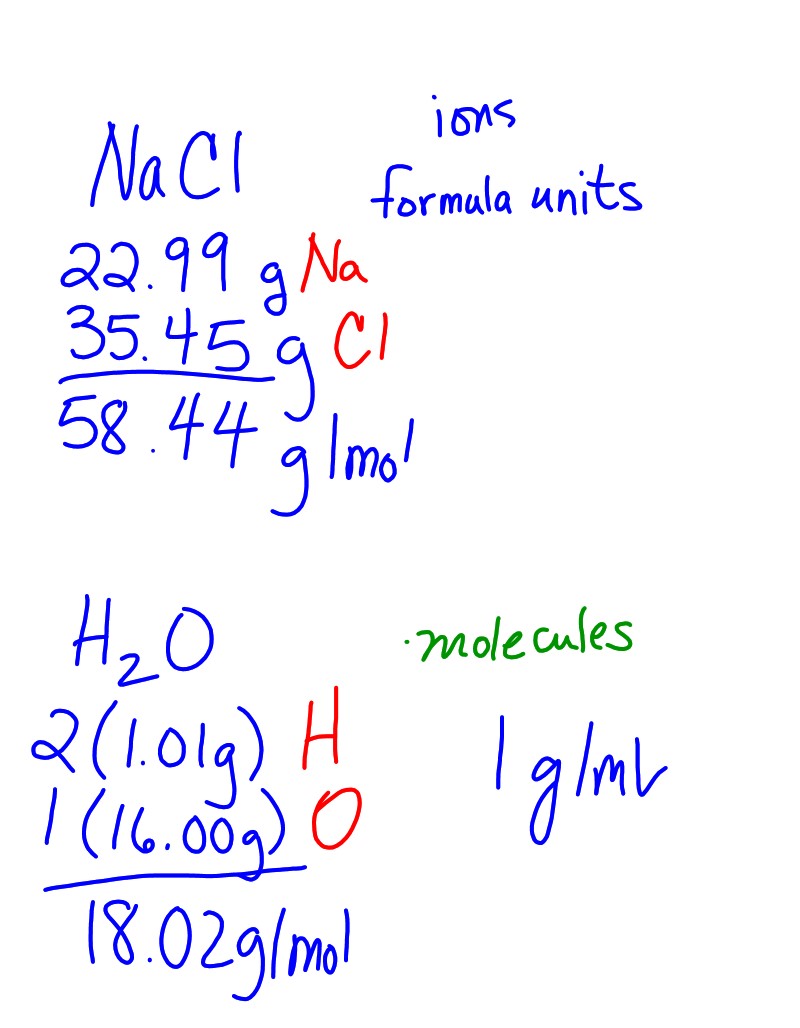 ions
NaCl
formula units
22.99 g Na
35.45 g Cl
58.44 g/mol
H₂O
·molecules
2(1.01g) H
1 g/mL
1(16.00g) O
18.02g/mol